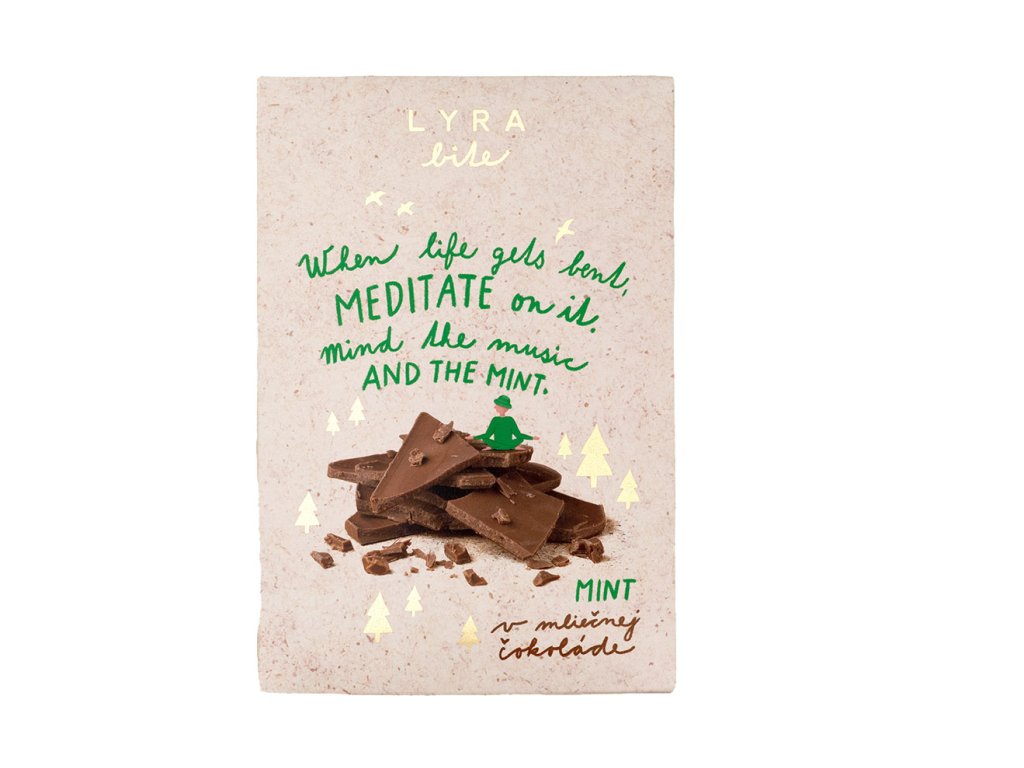 LYRA
bite
When life gets bent,
MEDITATE on it.
mind the music
AND THE MINT.
MINT
v mliečnej
čokoláde